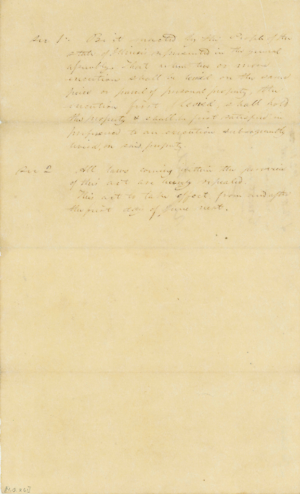 Sec 1. Be it enacted by the People of the
state of Illinois represented in the general
assembly, That when two or more
executions shall be levied on the same
piece or parcel of personal property, the
execution first levied, shall hold
the property & shall be first satisfied in
preference to an execution subsequently
levied, on said property
Sec 2 All laws coming within the purview
of this act are hereby repealed.
This act to take effect from and after
the first day of June next.